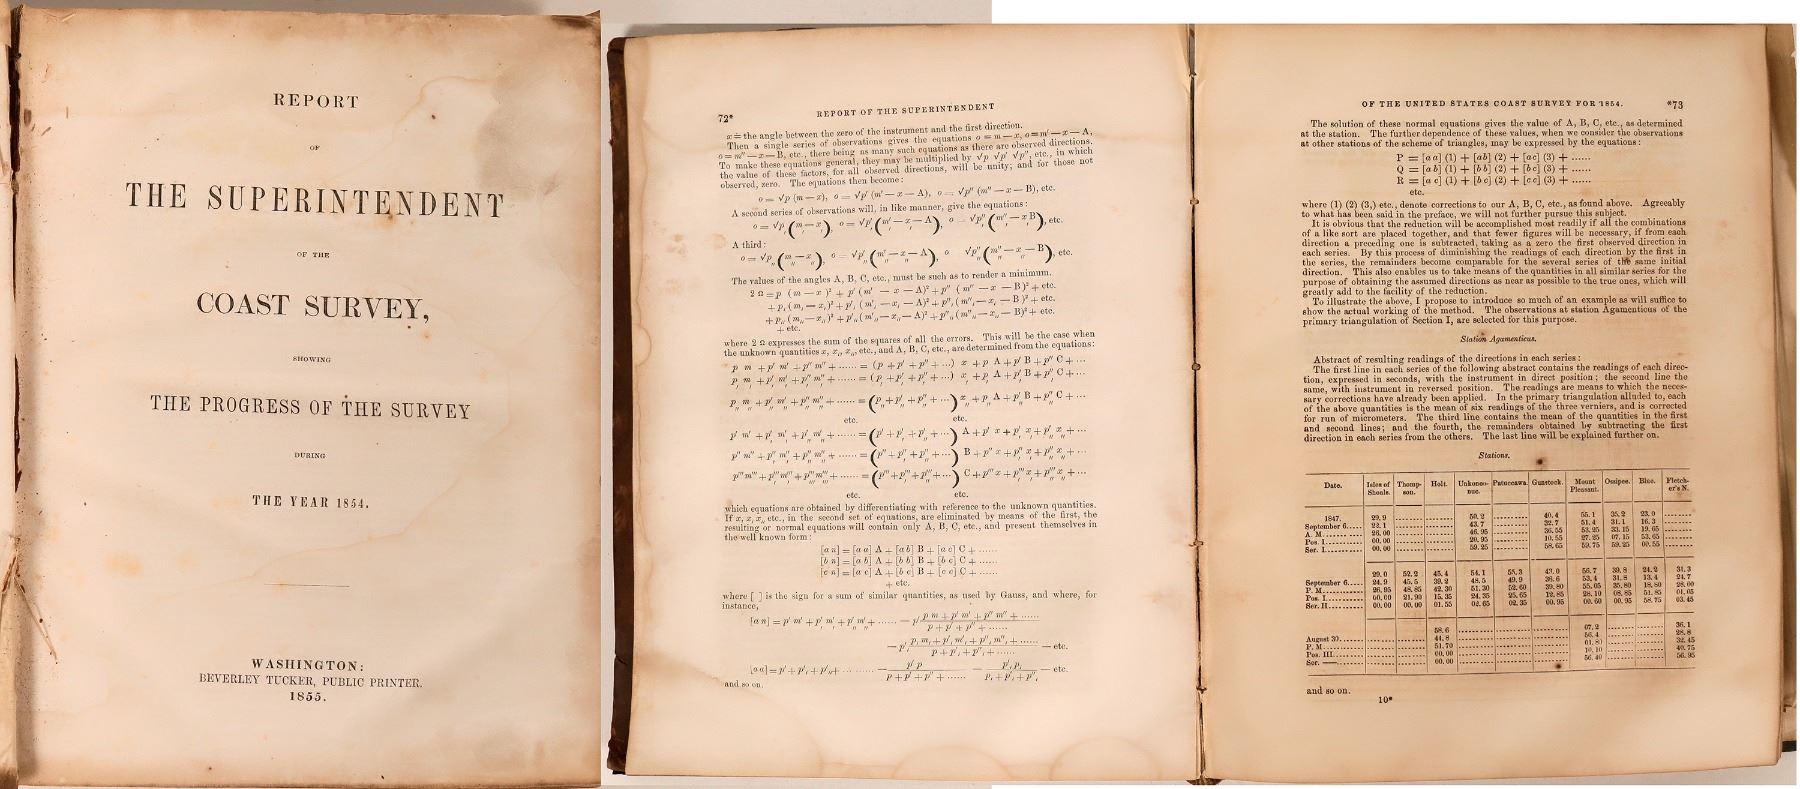 REPORT
OF
THE SUPERINTENDENT
OF THE
COAST SURVEY,
SHOWING
THE PROGRESS OF THE SURVEY
DURING
THE YEAR 1854.
WASHINGTON:
BEVERLEY TUCKER, PUBLIC PRINTER.
1855.
72*
REPORT OF THE SUPERINTENDENT
x = the angle between the zero of the instrument and the first direction.
Then a single series of observations gives the equations o = m — x, o = m′ — x — A,
o = m″ — x — B, etc., there being as many such equations as there are observed directions.
To make these equations general, they may be multiplied by √p √p′ √p″, etc., in which
the value of these factors, for all observed directions, will be unity; and for those not
observed, zero. The equations then become:
o = √p (m — x), o = √p′ (m′ — x — A), o = √p″ (m″ — x — B), etc.
A second series of observations will, in like manner, give the equations:
A third:
The values of the angles A, B, C, etc., must be such as to render a minimum.
2 Ω = p (m — x)² + p′ (m′ — x — A)² + p″ (m″ — x — B)² + etc.
+ p, (m, — x,)² + p′, (m′, — x, — A)² + p″, (m″, — x, — B)² + etc.
+ p,, (m,, — x,,)² + p′,, (m′,, — x,, — A)² + p″,, (m″,, — x,, — B)² + etc.
+ etc.
where 2 Ω expresses the sum of the squares of all the errors. This will be the case when
the unknown quantities x, x,, x,,, etc., and A, B, C, etc., are determined from the equations:
p m + p′ m′ + p″ m″ + ...... = (p + p′ + p″ + ...) x + p A + p′ B + p″ C + ...
etc. etc.
etc. etc.
which equations are obtained by differentiating with reference to the unknown quantities.
If x, x, x,, etc., in the second set of equations, are eliminated by means of the first, the
resulting or normal equations will contain only A, B, C, etc., and present themselves in
the well known form:
[a n] = [a a] A + [a b] B + [a c] C + ......
[b n] = [a b] A + [b b] B + [b c] C + ......
[c n] = [a c] A + [b c] B + [c c] C + ......
+ etc.
where [ ] is the sign for a sum of similar quantities, as used by Gauss, and where, for
instance,
and so on.
OF THE UNITED STATES COAST SURVEY FOR 1854.
*73
The solution of these normal equations gives the value of A, B, C, etc., as determined
at the station. The further dependence of these values, when we consider the observations
at other stations of the scheme of triangles, may be expressed by the equations:
P = [a a] (1) + [ab] (2) + [ac] (3) + ......
Q = [a b] (1) + [b b] (2) + [b c] (3) + ......
R = [a c] (1) + [b c] (2) + [c c] (3) + ......
etc.
where (1) (2) (3,) etc., denote corrections to our A, B, C, etc., as found above. Agreeably
to what has been said in the preface, we will not further pursue this subject.
It is obvious that the reduction will be accomplished most readily if all the combinations
of a like sort are placed together, and that fewer figures will be necessary, if from each
direction a preceding one is subtracted, taking as a zero the first observed direction in
each series. By this process of diminishing the readings of each direction by the first in
the series, the remainders become comparable for the several series of the same initial
direction. This also enables us to take means of the quantities in all similar series for the
purpose of obtaining the assumed directions as near as possible to the true ones, which will
greatly add to the facility of the reduction.
To illustrate the above, I propose to introduce so much of an example as will suffice to
show the actual working of the method. The observations at station Agamenticus of the
primary triangulation of Section I, are selected for this purpose.
Station Agamenticus.
Abstract of resulting readings of the directions in each series:
The first line in each series of the following abstract contains the readings of each direc-
tion, expressed in seconds, with the instrument in direct position; the second line the
same, with instrument in reversed position. The readings are means to which the neces-
sary corrections have already been applied. In the primary triangulation alluded to, each
of the above quantities is the mean of six readings of the three verniers, and is corrected
for run of micrometers. The third line contains the mean of the quantities in the first
and second lines; and the fourth, the remainders obtained by subtracting the first
direction in each series from the others. The last line will be explained further on.
Stations.
Date. Isles of Shoals. Thomp- son. Holt. Unkonoo- nuc. Patuccawa. Gunstock. Mount Pleasant. Ossipee. Blue. Fletch- er's N.
1847.
September 6..... 29.9 50.2 40.4 55.1 35.2 23.0
A. M. 22.1 43.7 32.7 51.4 31.1 16.3
26.00 46.95 36.55 53.25 33.15 19.65
Pos. I. 00.00 20.95 10.55 27.25 07.15 53.65
Ser. I. 00.00 59.25 58.65 59.75 59.25 00.55
29.0 52.2 45.4 54.1 55.3 43.0 56.7 39.8 24.2 31.3
September 6..... 24.9 45.5 39.2 48.5 49.9 36.6 53.4 31.8 13.4 24.7
P. M. 26.95 48.85 42.30 51.30 52.60 39.80 55.05 35.80 18.80 28.00
Pos. I. 00.00 21.90 15.35 24.35 25.65 12.85 28.10 08.85 51.85 01.05
Ser. II. 00.00 00.00 01.55 02.65 02.35 00.95 00.60 00.95 58.75 03.45
58.6 67.2 36.1
August 30. 44.8 56.4 28.8
P. M. 51.70 61.80 32.45
Pos. III. 00.00 10.10 40.75
Ser. — 00.00 56.40 56.95
and so on.
10*